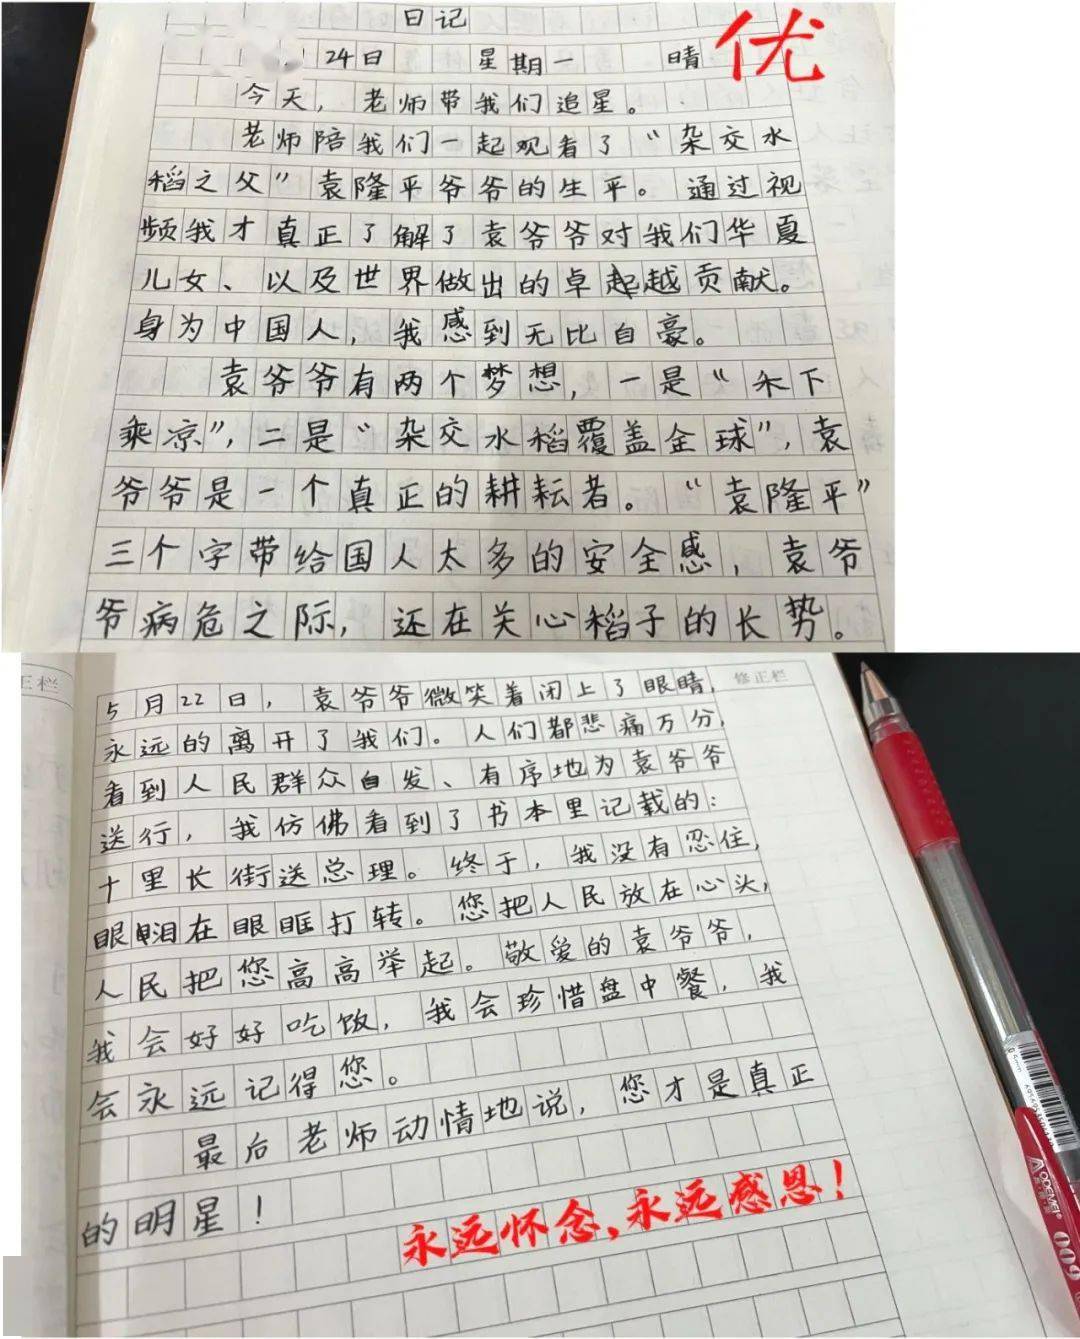 日记
优
24日 星期一 晴
今天，老师带我们追星。
老师陪我们一起观看了“杂交水
稻之父”袁隆平爷爷的生平。通过视
频我才真正了解了袁爷爷对我们华夏
儿女、以及世界做出的卓越贡献。
身为中国人，我感到无比自豪。
袁爷爷有两个梦想，一是“禾下
乘凉”，二是“杂交水稻覆盖全球”，袁
爷爷是一个真正的耕耘者。“袁隆平”
三个字带给国人太多的安全感，袁爷
爷病危之际，还在关心稻子的长势。
正栏
修正栏
5月22日，袁爷爷微笑着闭上了眼睛，
永远的离开了我们。人们都悲痛万分，
看到人民群众自发、有序地为袁爷爷
送行，我仿佛看到了书本里记载的：
十里长街送总理。终于，我没有忍住，
眼泪在眼眶打转。您把人民放在心头，
人民把您高高举起。敬爱的袁爷爷，
我会好好吃饭，我会珍惜盘中餐，我
会永远记得您。
最后老师动情地说，您才是真正
的明星！
永远怀念，永远感恩！
AODEMEI
009